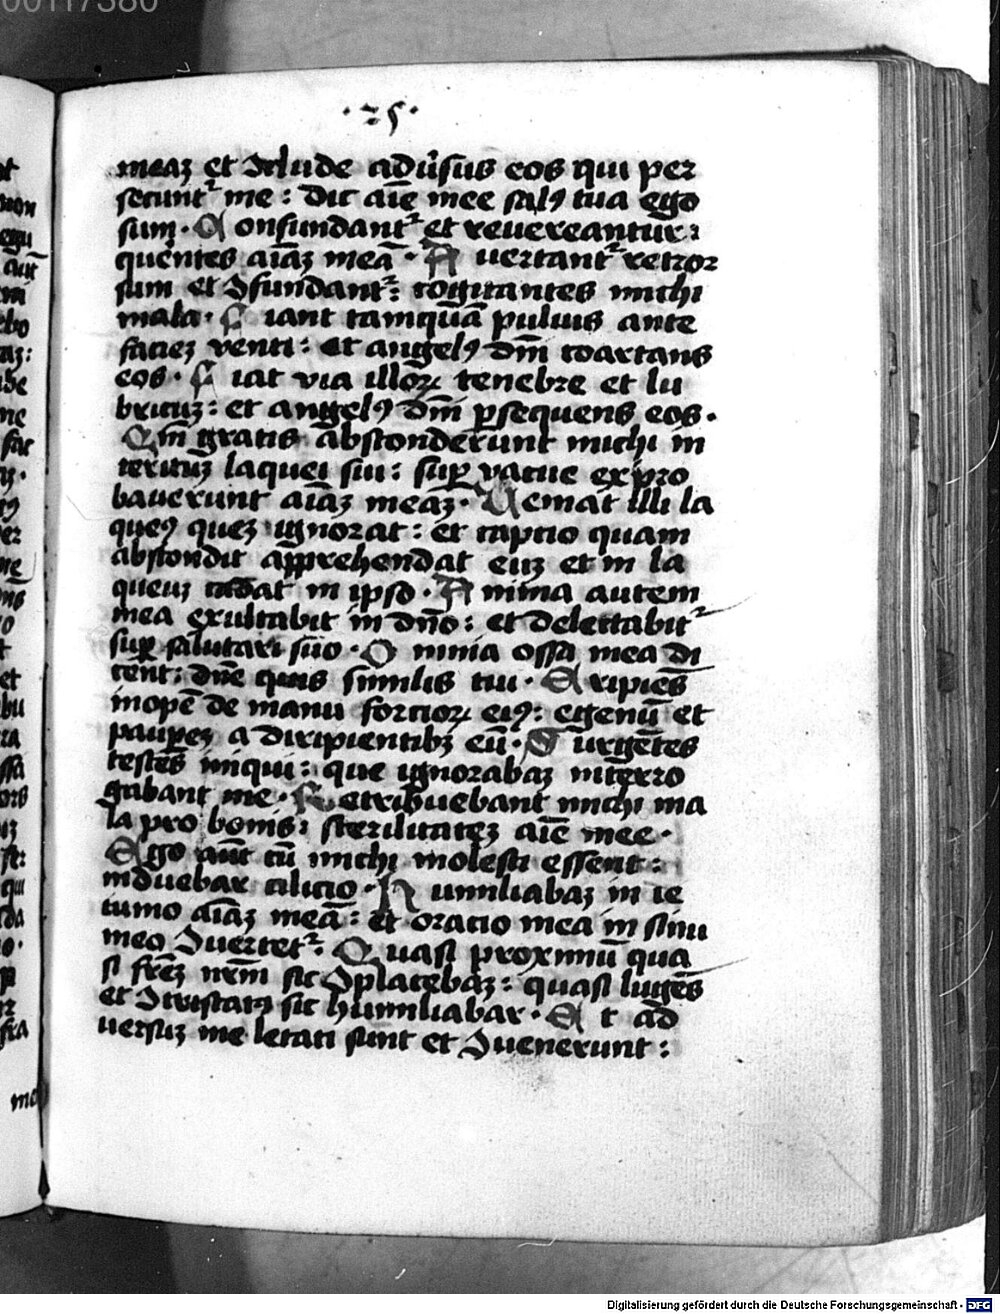 00117380
·25·
meaʒ et ꝯclude adūsus eos qui per
secuntᷣ me : dic aīe mee salꝯ tua ego
sum · Confundantᷣ et reuereantur :
querentes aīaʒ meā · Auertantᷣ retror
sum et ꝯfundantᷣ : cogitantes michi
mala · Fiant tamquā puluis ante
facieʒ venti : et angelꝯ dn̄i coartans
eos · Fiat via illoꝝ tenebre et lu
bricuʒ : et angelꝯ dn̄i ꝑsequens eos ·
Qm̄ gratis absconderunt michi in
terituʒ laquei sui : suꝑ vacue expro
baverunt aīaʒ meaʒ · Veniat illi la
queꝯ queʒ ignorat : et captio quam
abscondit apprehendat euʒ et in la
queuʒ cadat in ipso · Anima autem
mea exultabit in dn̄o : et delectabitᷣ
suꝑ salutari suo · Omnia ossa mea di
cent : dn̄e quis similis tui · Eripiēs
inopē de manu fortioꝝ eiꝯ : egenū et
pauꝑeʒ a diripientibʒ eū · Surgētes
testes iniqui : que ignorabaʒ interro
gabant me · Retribuebant michi ma
la pro bonis : sterilitateʒ aīe mee ·
Ego aūt cū michi molesti essent :
induebar cilicio · Humiliabaʒ in ie
iunio aīaʒ meā : et oratio mea in sinu
meo ꝯuertetᷣ · Quasi proximū qua
si fr̄eʒ nr̄m sic ꝯplacebaʒ : quasi lugēs
et ꝯtristatꝯ sic humiliabar · Et ad
uersuʒ me letati sunt et ꝯuenerunt :
me
Digitalisierung gefördert durch die Deutsche Forschungsgemeinschaft - DFG